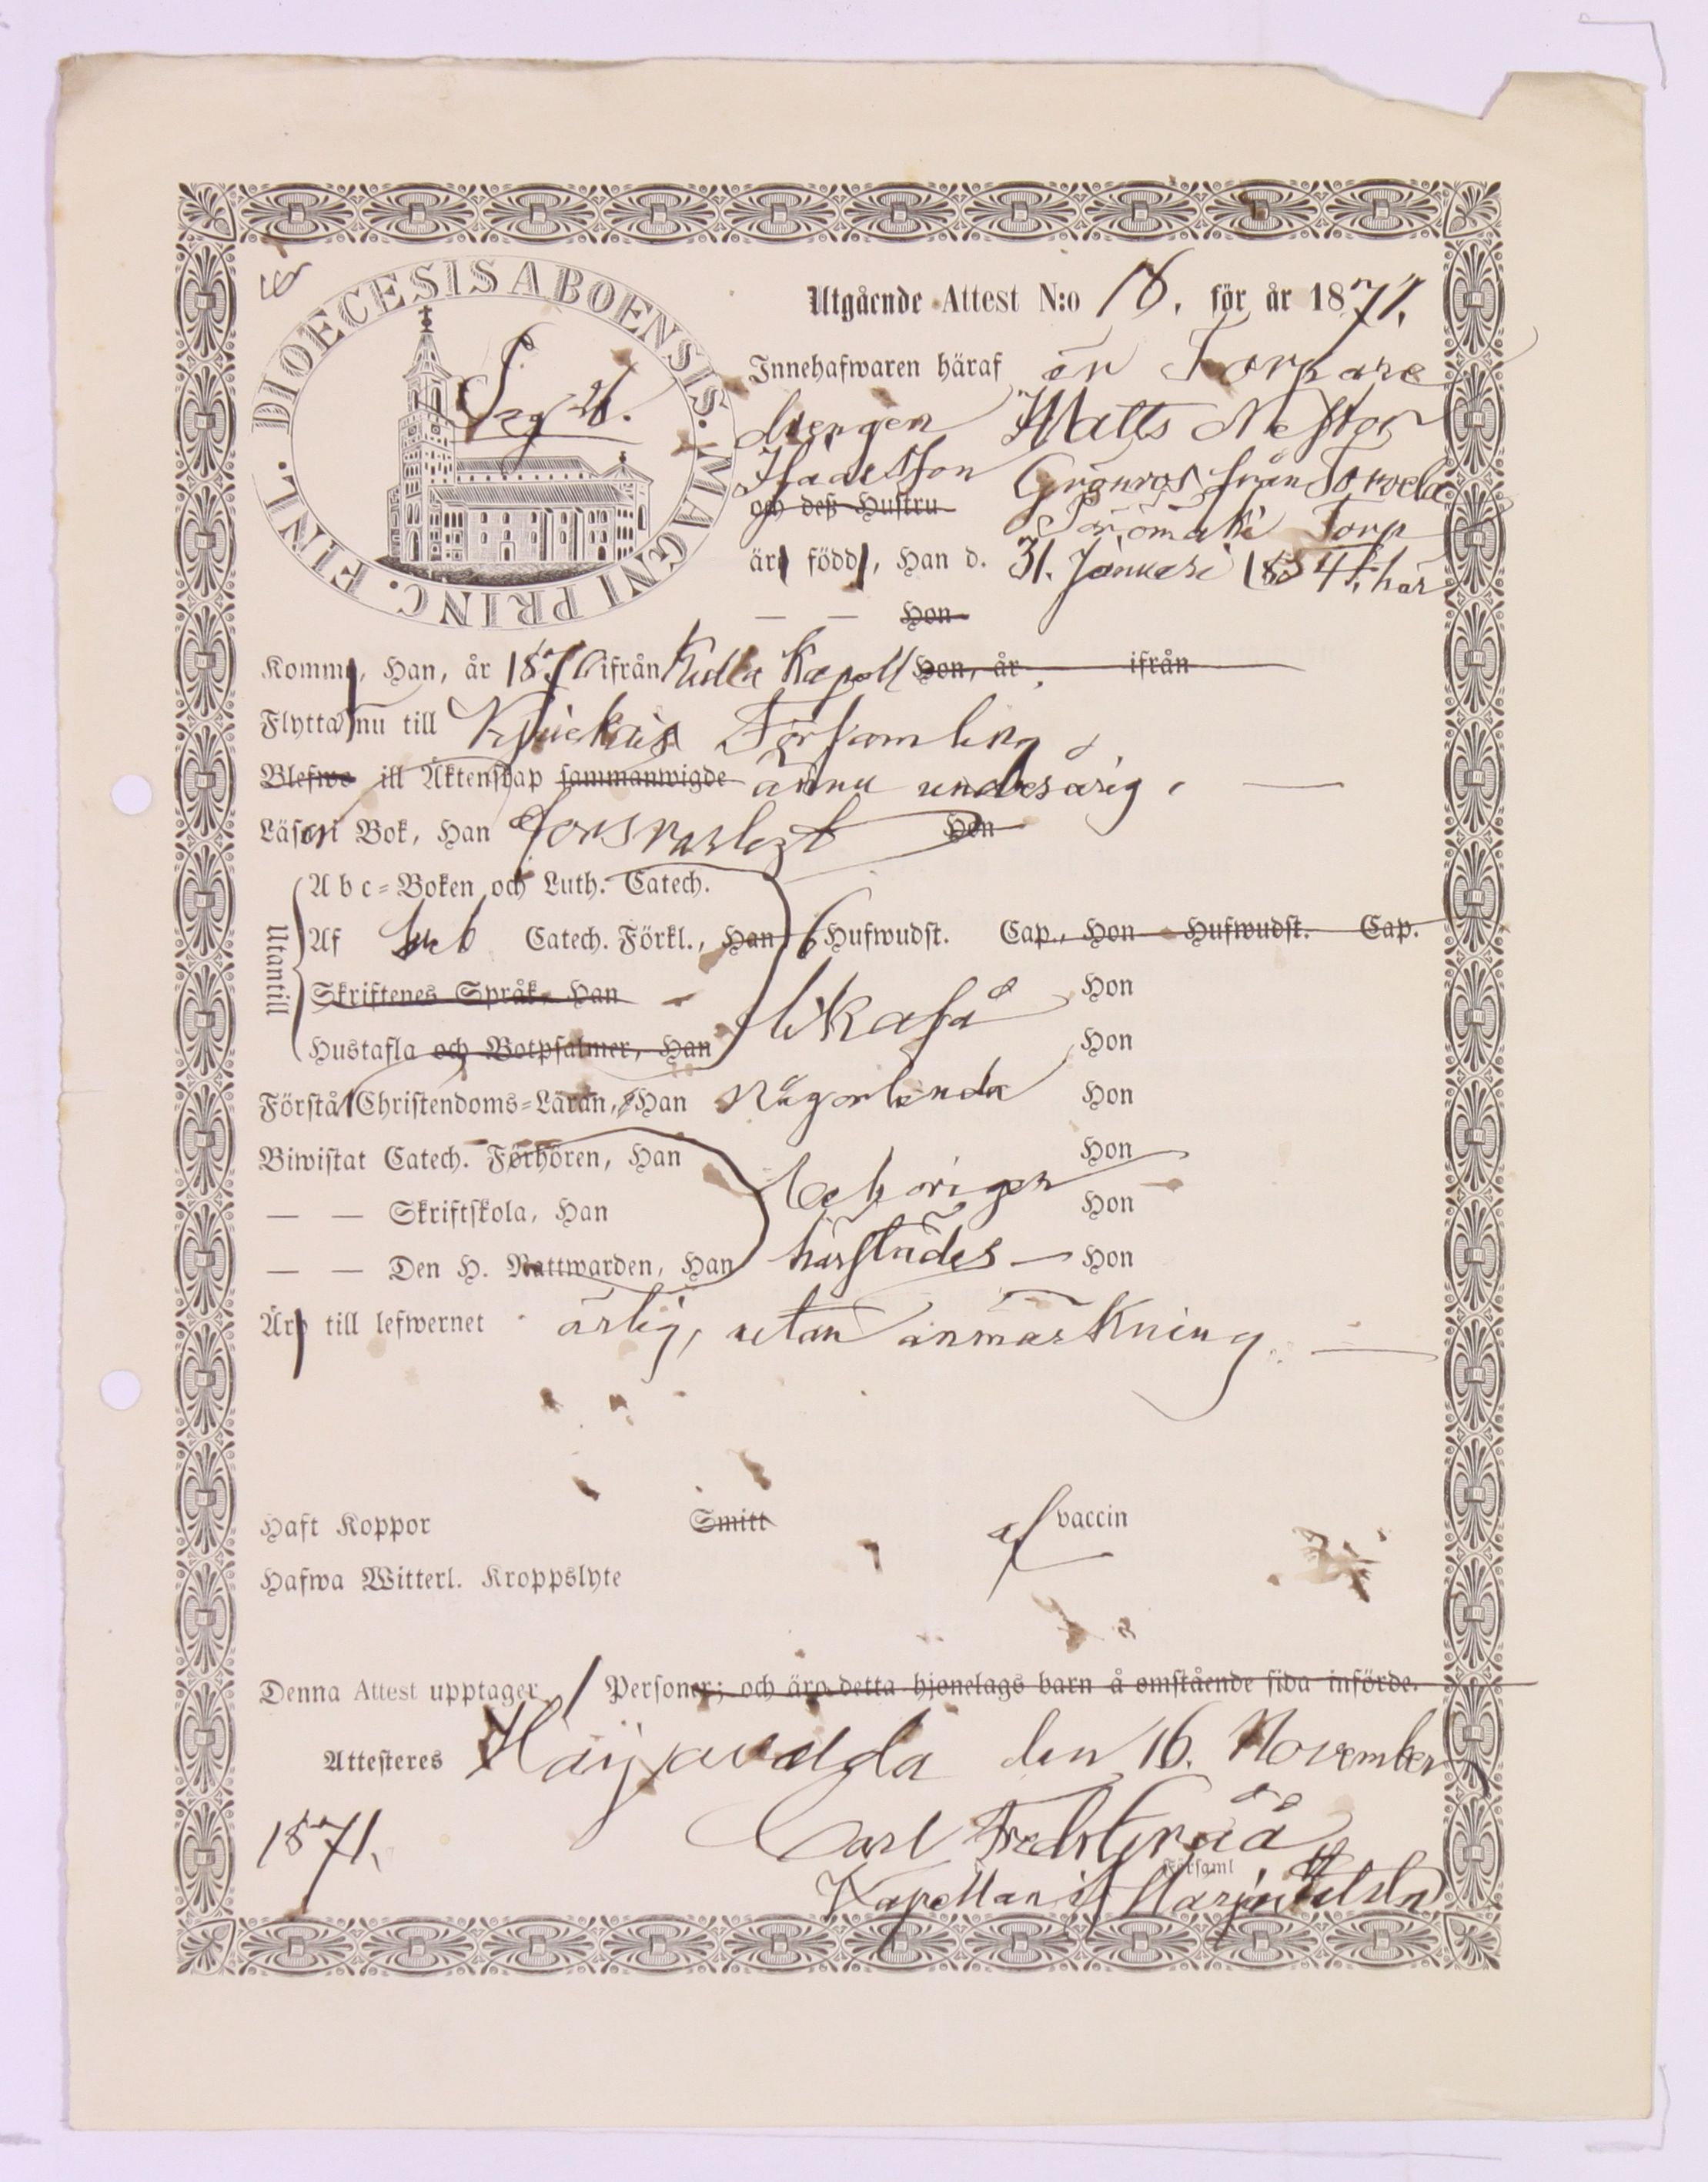 DIOECESIS ABOENSIS. MAGNI PRINC. FINL.
Utgående Attest N:o 18. för år 1871.
Innehafwaren häraf är Torpare
drengen Matts Nestor
Isaacsson Grönros från Torvela
och deß Hustru Torp
är född, Han d. 31. Januari 1854. här
— — Hon
Komm, Han, år 1870 ifrån Kapell Hon, år ifrån
Flytta nu till Församling
Blefwo ill Äktenskap sammanwigde ännu underårig. —
Läser i Bok, Han försvarligt Hon
Utantill
A b c=Boken och Luth. Catech.
Af Catech. Förkl., Han 6 Hufwudst. Cap., Hon Hufwudst. Cap.
Skriftenes Språk, Han likaså Hon
Hustafla och Botpsalmer, Han Hon
Förstå Christendoms=Läran, Han Någorlunda Hon
Biwistat Catech. Förhören, Han behörigen Hon
— — Skriftskola, Han Hon
— — Den H. Nattwarden, Han härstädes — Hon
Är till lefwernet ärlig, utan anmärkning. —
Haft Koppor Smitt af vaccin
Hafwa Witterl. Kroppslyte
Denna Attest upptager 1 Personer; och äro detta hjonelags barn å omstående sida införde.
Attesteres den 16. November
1871. Carl Fredr.
Församl
Kapellan i